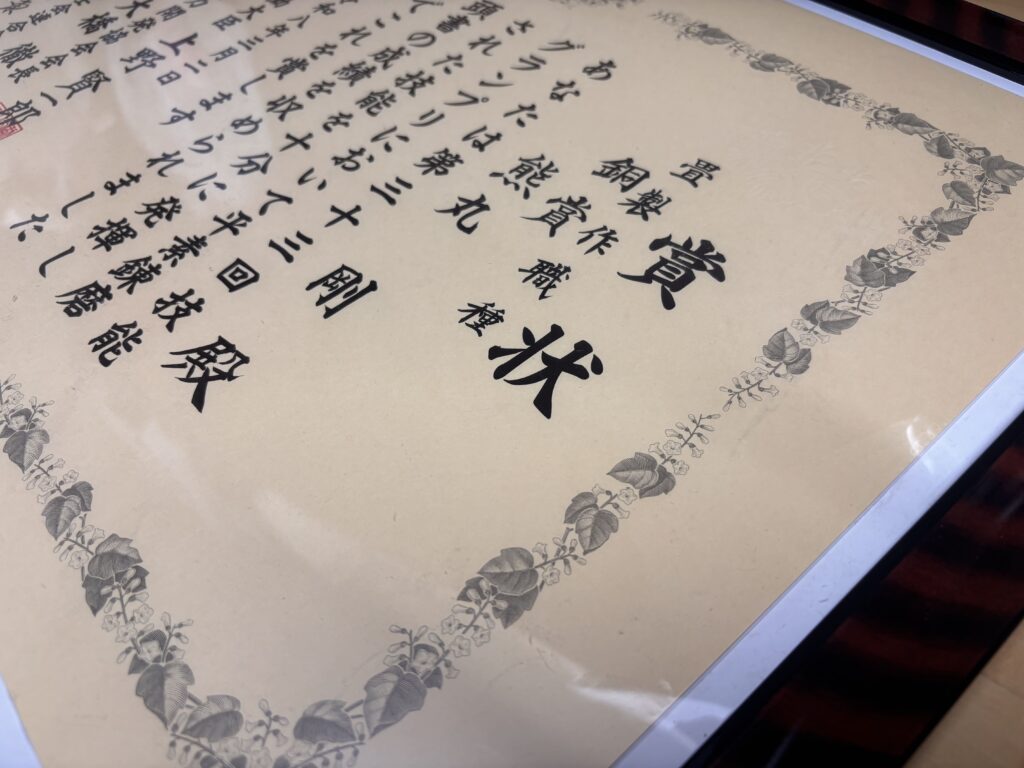 賞状
畳製作職種
銅賞
熊丸 剛 殿
あなたは第三十三回技能
グランプリにおいて平素錬磨
された技能を十分に発揮し
頭書の成績を収められました
でこれを賞します
和八年三月二日
大臣 上野 賢一郎
力開発協会会長
大橋 徹